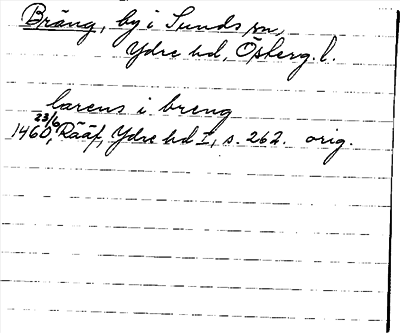 Bräng, by i Sunds sn,
Ydre hd, Ösberg. l.
larens i breng
23/6
1460, Rääf, Ydre hd I, s. 262. orig.